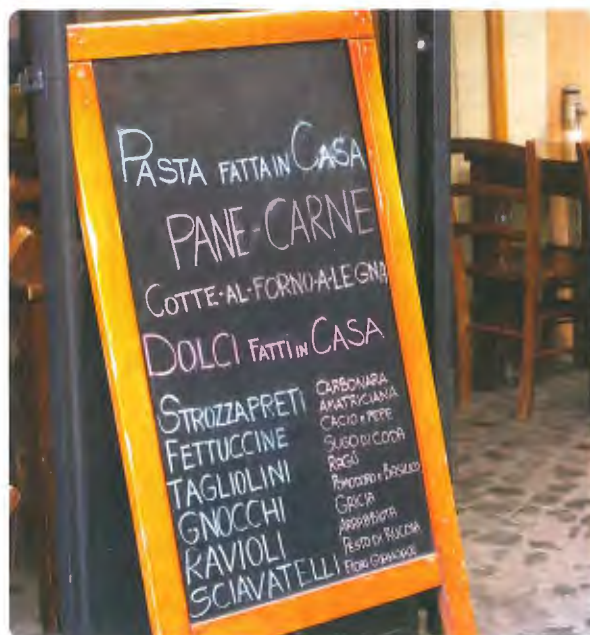 PASTA FATTA IN CASA
PANE-CARNE
COTTE-AL-FORNO-A-LEGNA
DOLCI FATTI IN CASA
STROZZAPRETI
FETTUCCINE
TAGLIOLINI
GNOCCHI
RAVIOLI
SCIAVATELLI
CARBONARA
AMATRICIANA
CACIO e PEPE
SUGO DI CODA
RAGÙ
POMODORO e BASILICO
GRICIA
ARRABBIATA
PESTO DI RUCOLA
FIORI